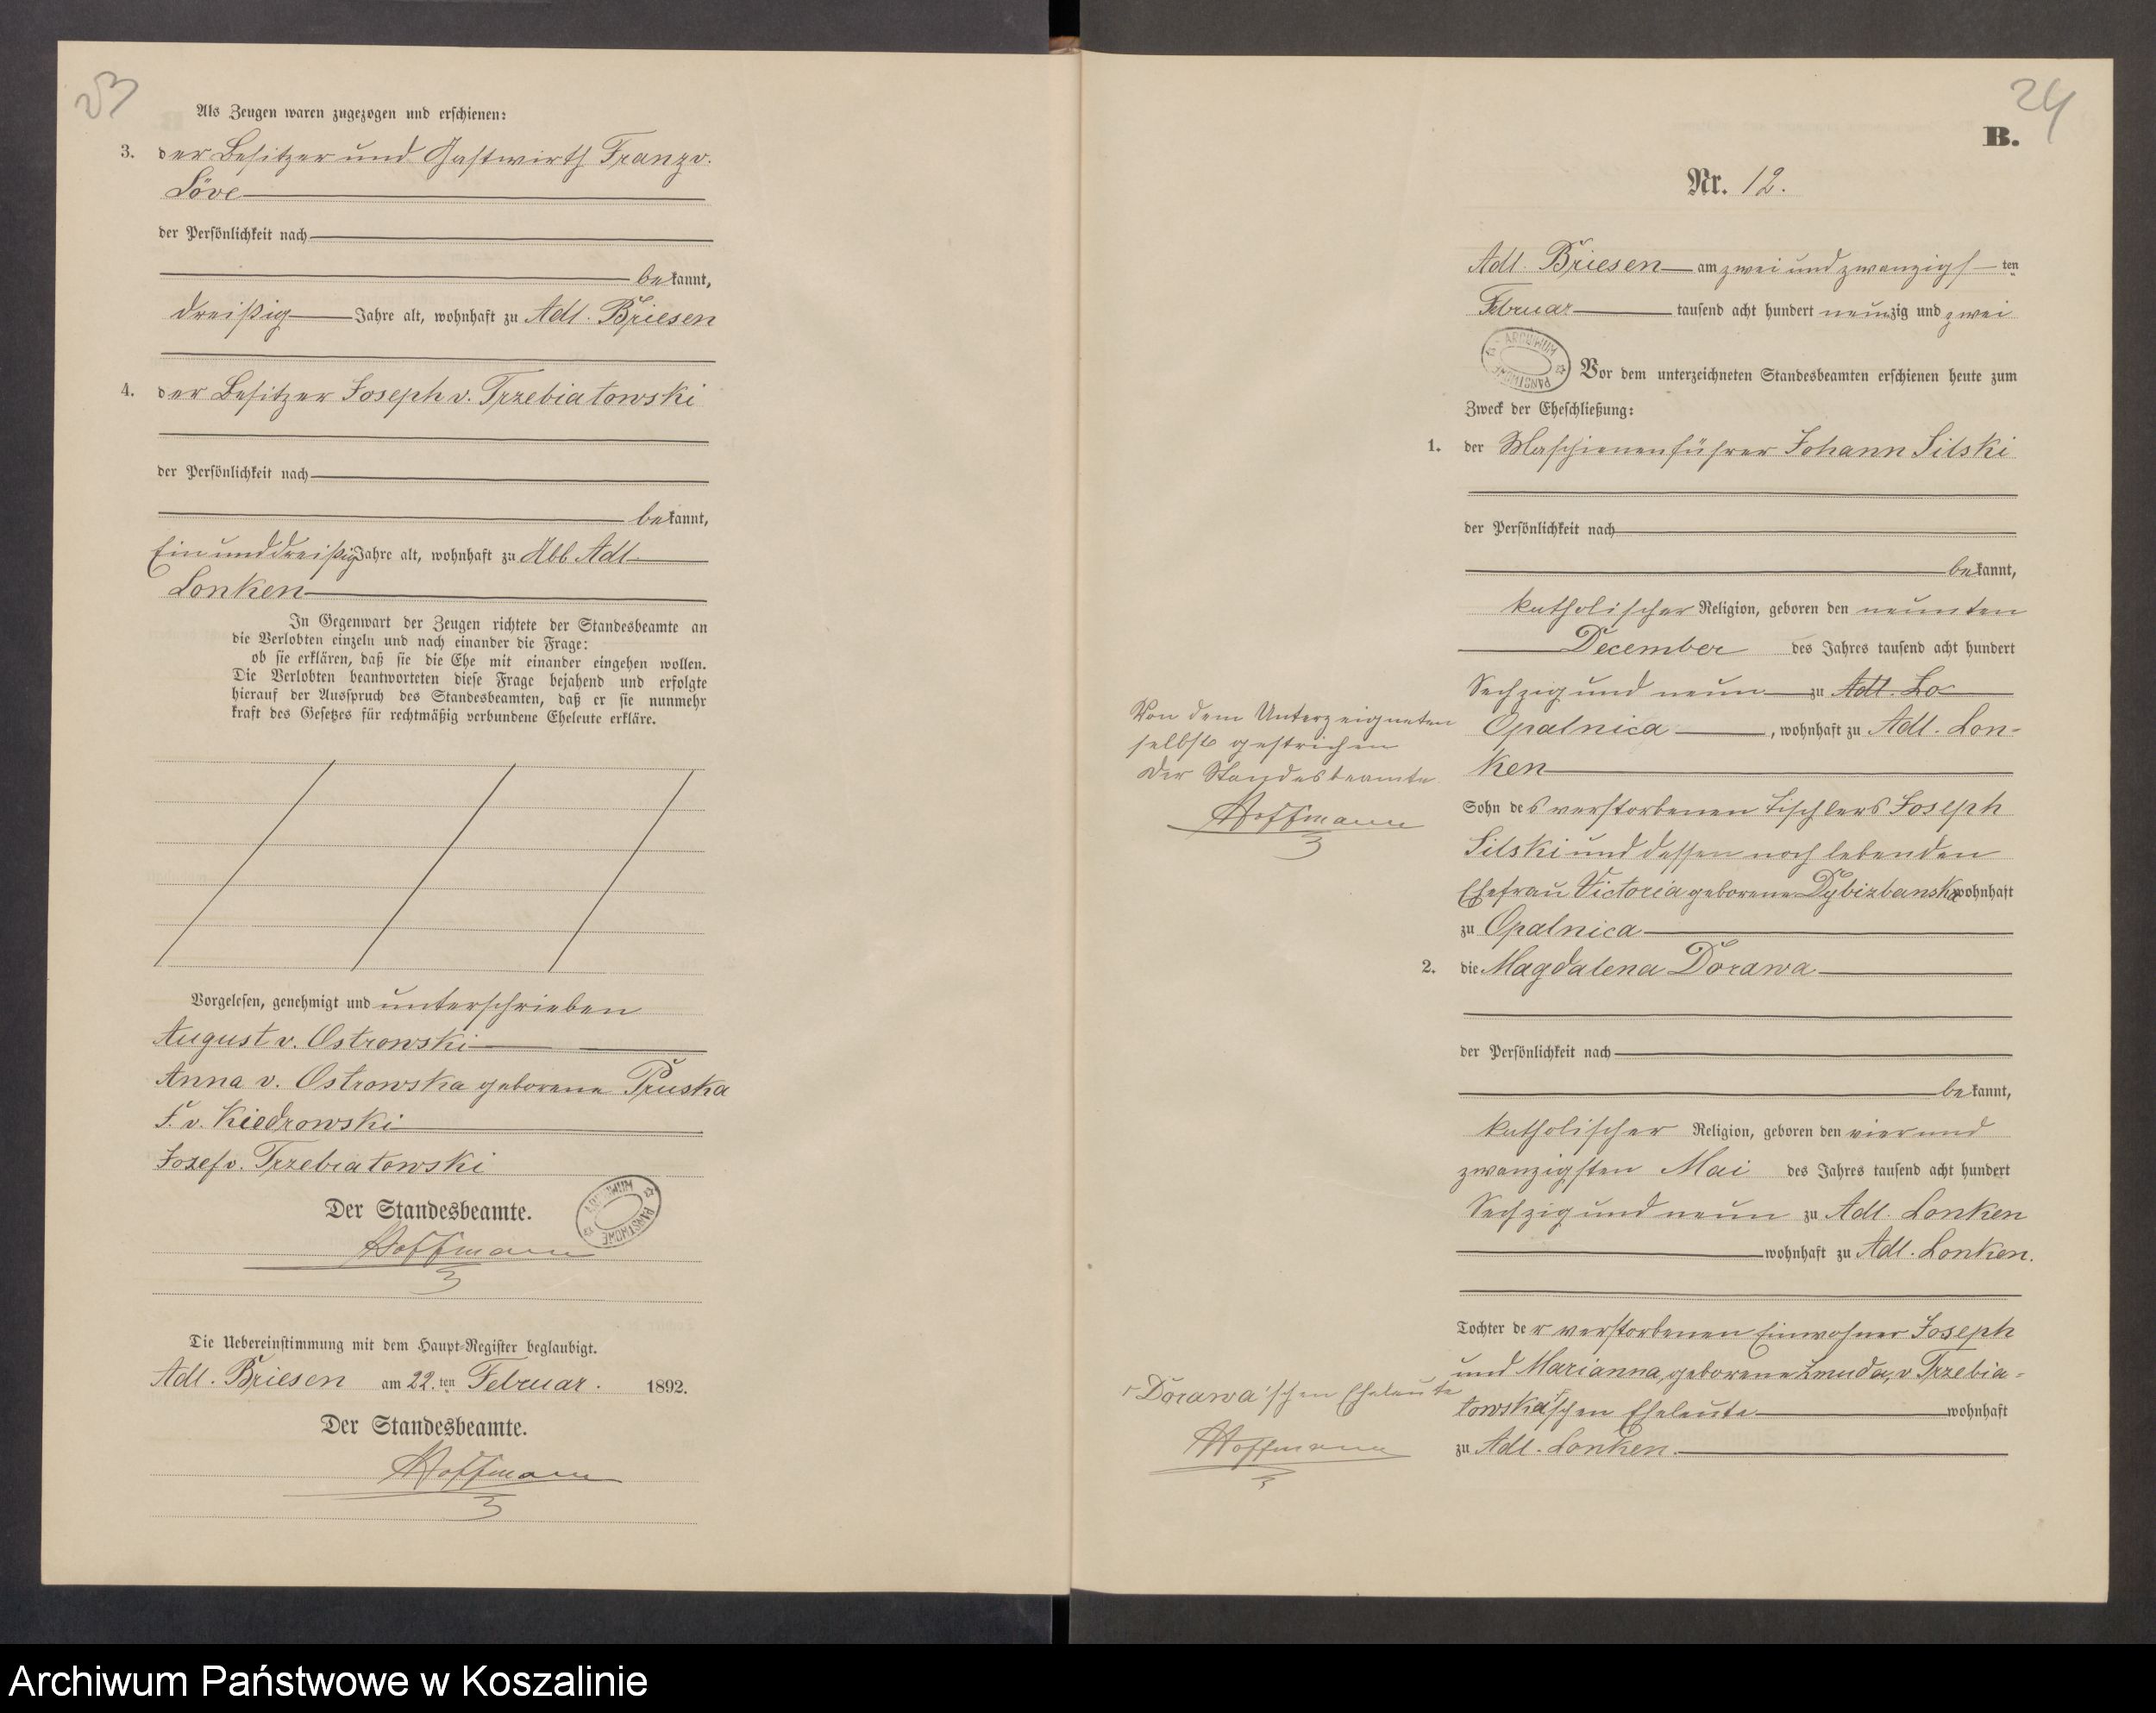 23
Als Zeugen waren zugezogen und erschienen:
3. der Besitzer und Gastwirth Franz v.
Löve
der Persönlichkeit nach
bekannt,
dreißig Jahre alt, wohnhaft zu Adl. Briesen
4. der Besitzer Joseph v. Trzebiatowski
der Persönlichkeit nach
bekannt,
Einunddreißig Jahre alt, wohnhaft zu Abb. Adl.
Lonken
In Gegenwart der Zeugen richtete der Standesbeamte an
die Verlobten einzeln und nach einander die Frage:
ob sie erklären, daß sie die Ehe mit einander eingehen wollen.
Die Verlobten beantworteten diese Frage bejahend und erfolgte
hierauf der Ausspruch des Standesbeamten, daß er sie nunmehr
kraft des Gesetzes für rechtmäßig verbundene Eheleute erkläre.
Vorgelesen, genehmigt und unterschrieben
August v. Ostrowski
Anna v. Ostrowska geborene Pruska
F. v. Kiedrowski
Josef v. Trzebiatowski
Der Standesbeamte.
ARCHIWUM PAŃSTWOWE
Hoffmann
Die Uebereinstimmung mit dem Haupt-Register beglaubigt.
Adl. Briesen am 22.ten Februar. 1892.
Der Standesbeamte.
Hoffmann
24
B.
Nr. 12.
Adl. Briesen am zwei und zwanzigsten
Februar tausend acht hundert neunzig und zwei
ARCHIWUM PAŃSTWOWE
Vor dem unterzeichneten Standesbeamten erschienen heute zum
Zweck der Eheschließung:
1. der Maschienenführer Johann Silski
der Persönlichkeit nach
bekannt,
katholischer Religion, geboren den neunten
December des Jahres tausend acht hundert
Sechzig und neun zu Adl. Lo
Opalnica, wohnhaft zu Adl. Lon-
ken
Sohn des verstorbenen Tischlers Joseph
Silski und dessen noch lebenden
Ehefrau Victoria geborene Dybizbanska wohnhaft
zu Opalnica
Von dem Unterzeigneten
selbst gestrichen
Der Standesbeamte
Hoffmann
2. die Magdalena Dorawa
der Persönlichkeit nach
bekannt,
katholischer Religion, geboren den vier und
zwanzigsten Mai des Jahres tausend acht hundert
Sechzig und neun zu Adl. Lonken
wohnhaft zu Adl. Lonken.
Tochter der verstorbenen Einwohner Joseph
und Marianna, geborene Zmuda, v Trzebia-
towska'schen Eheleute wohnhaft
zu Adl. Lonken.
Dorawa'schen Eheleute
Hoffmann
Archiwum Państwowe w Koszalinie